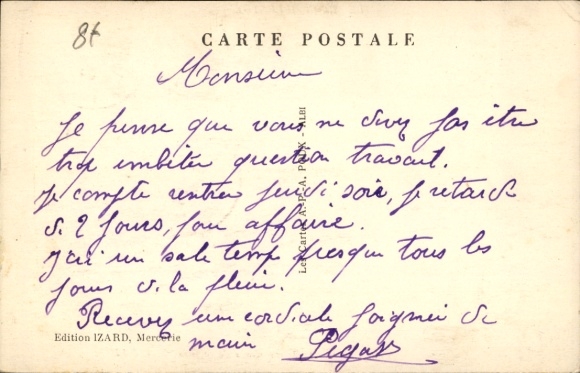 8f
CARTE POSTALE
Monsieur
Je pense que vous ne devez pas être
trop embiter question travail.
Je compte rentrer jeudi soir, je retarde
de 2 jours, pour affaire.
J'ai un sale temp presque tous les
jours de la pluie.
Recevez une cordiale poignée de
main
Les Cartes A. P. A. POUX - ALBI
Edition IZARD, Mercerie